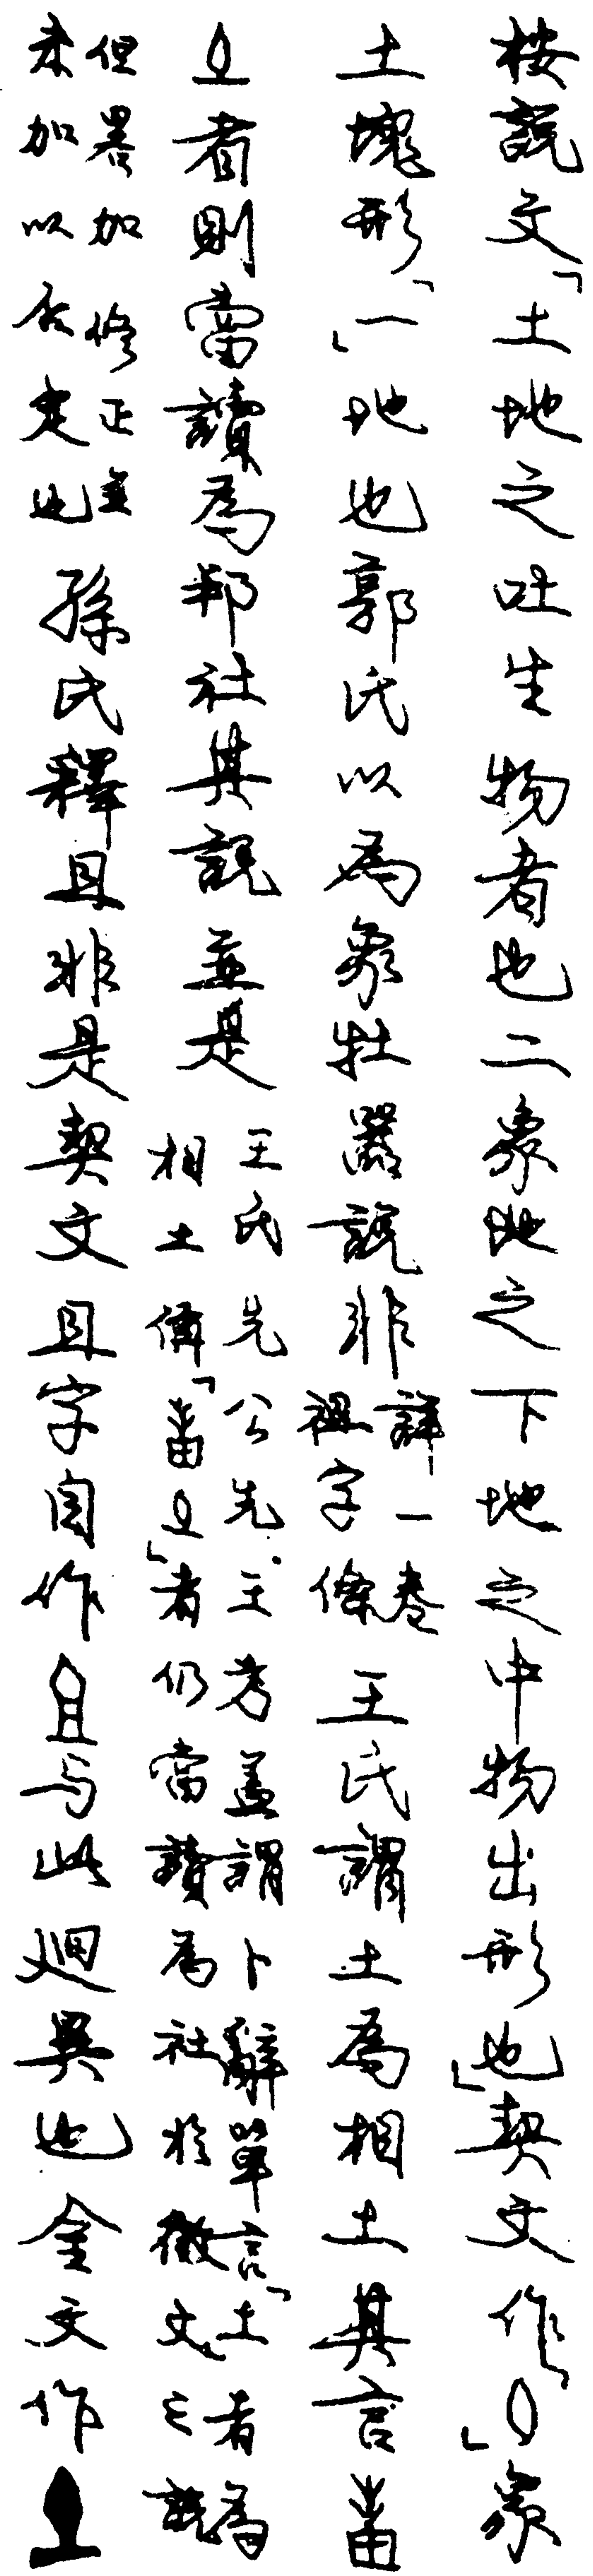 桉說文「土地之吐生物者也二象地之下地之中物出形也」契文作「」象
土塊形「一」地也郭氏以為象牡器說非詳一卷祖字條王氏謂土為相土其言𤰫
者則當讀為邦社其說並是王氏先公先王考蓋謂卜辭單言「土」者為相土偁「𤰫」者仍當讀為社於徵文之說
但畧加修正並未加以否定也孫氏釋且非是契文且字自作与此廻異也金文作